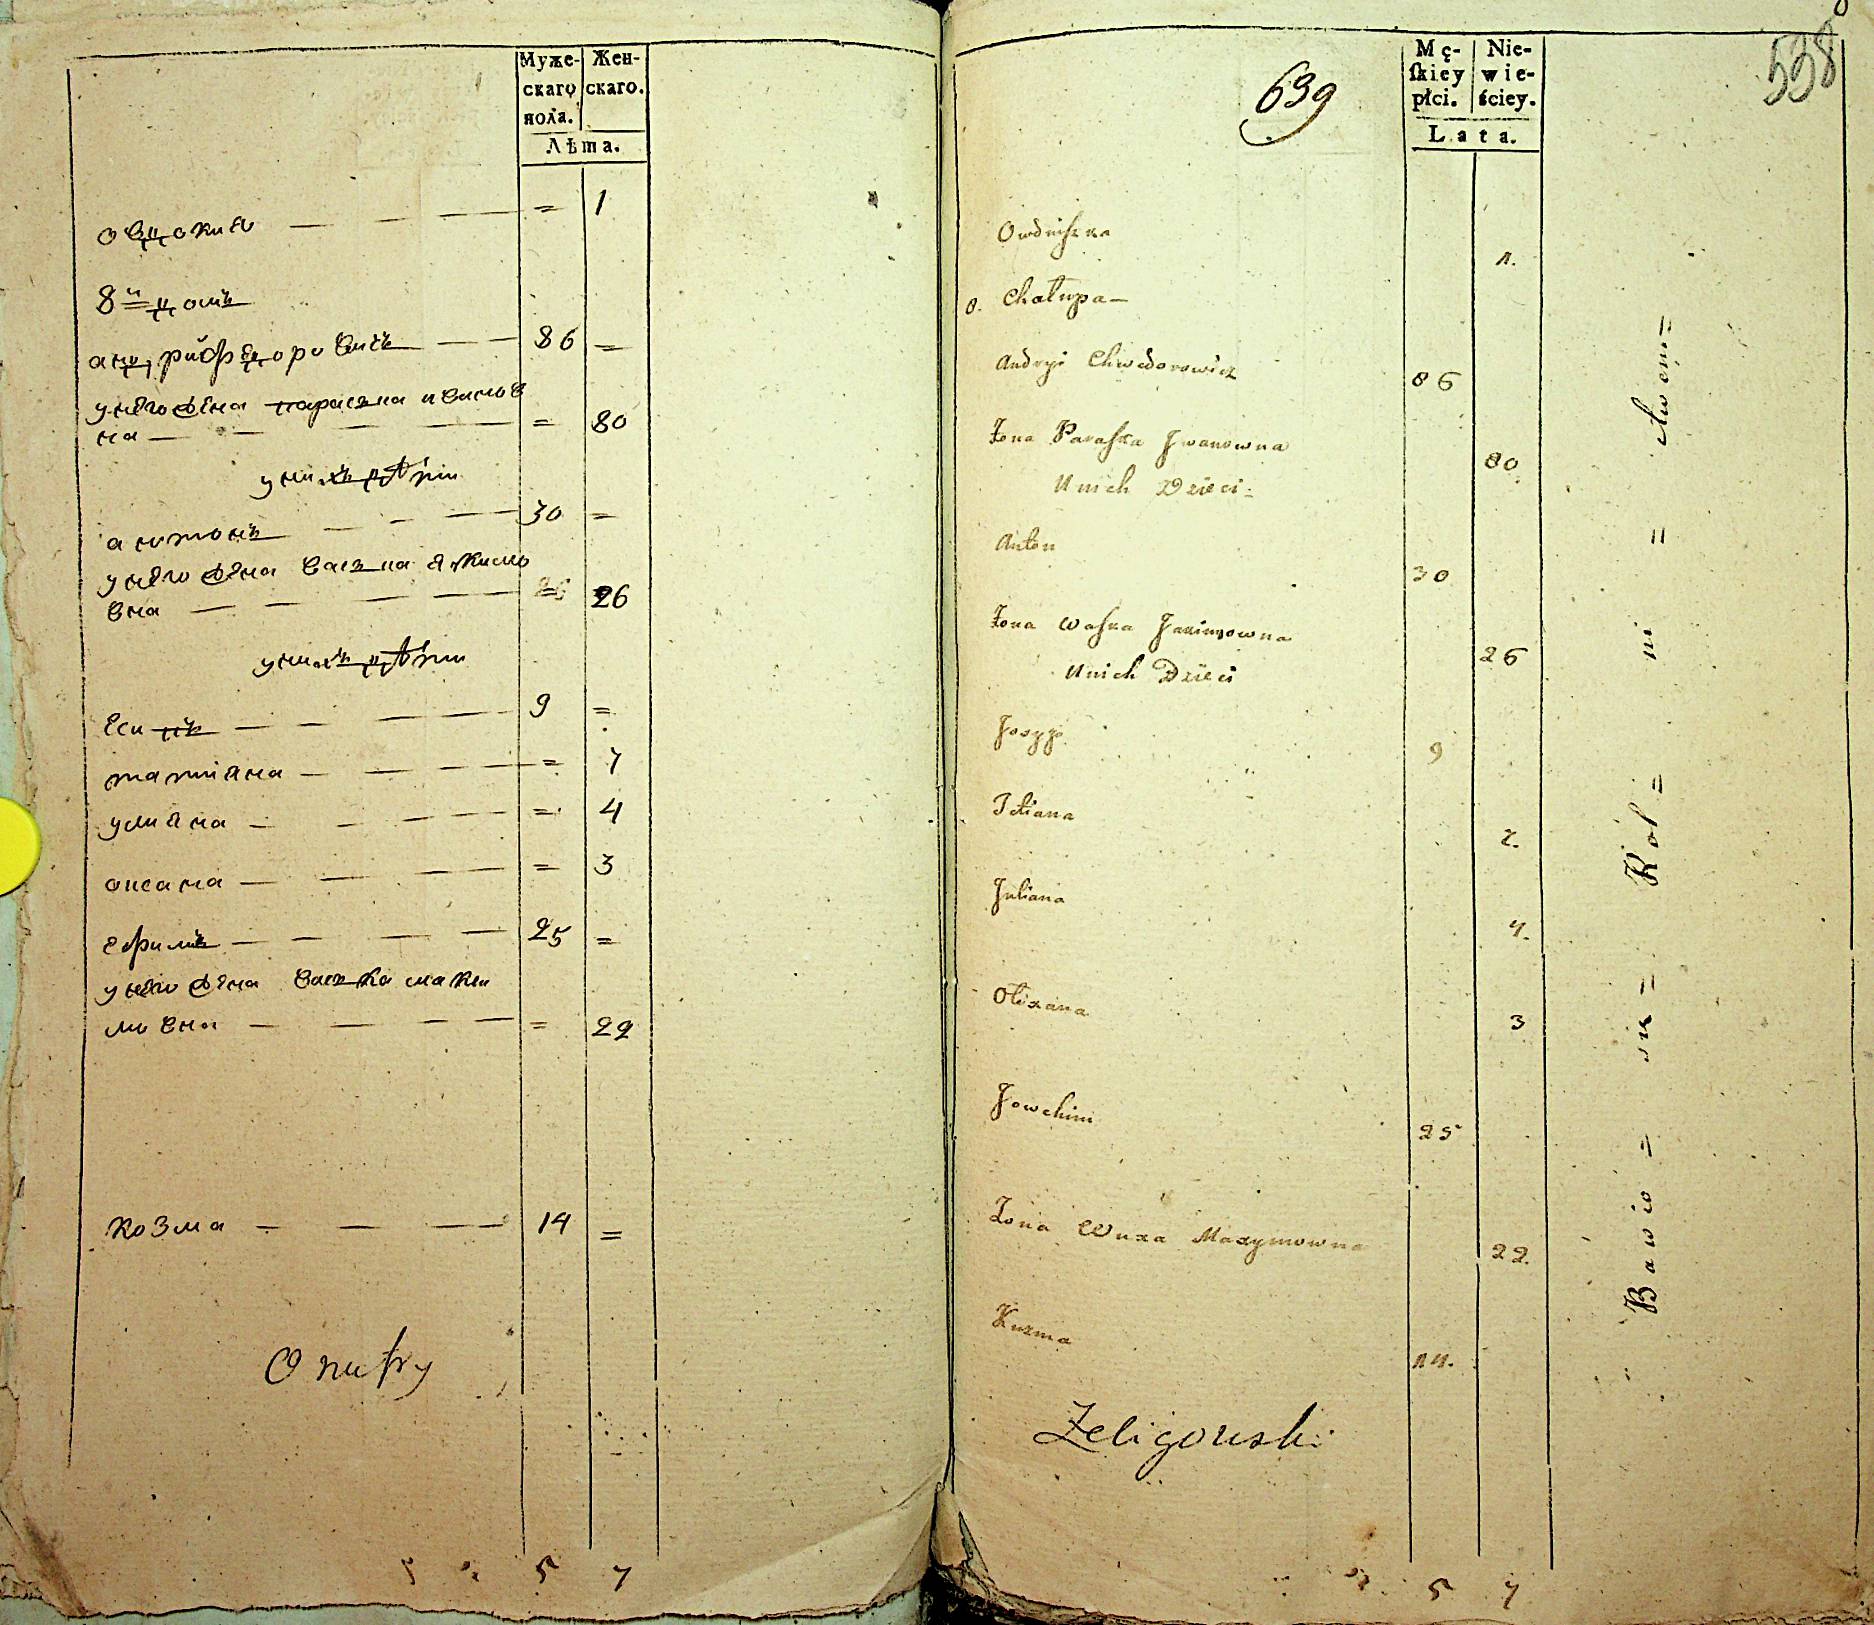 Муже-
скаго
пола.
Жен-
скаго.
Лѣта.
овдокиа = 1
8й домъ
андрій федоровичъ 86 =
унего жена параска ивановна = 80
унихъ дѣти
антонъ 30 =
унего жена васка якимовна 26
унихъ дѣти
Есипъ 9 =
татіяна = 7
уляяна = 4
оксана = 3
ефимъ 25 =
унего жена васка максимовна = 22
козма 14 =
Onufry
5 7
639
538
Mę-
ſkiey
płci.
Nie-
wie-
ściey.
Lata.
1.
8. Chałupa
Andryi Chwedorowicz 86
Żona Paraska Jwanowna 80
Unich Dzieci
Anton 30
Żona Waska Jakimowna 26
Unich Dzieci
Josyp 9
Tetiana
Juliana 4.
Olixana 3
Jowchim 25
Żona Maxymowna 22.
Kuzma 14.
Żeligowski
5 7